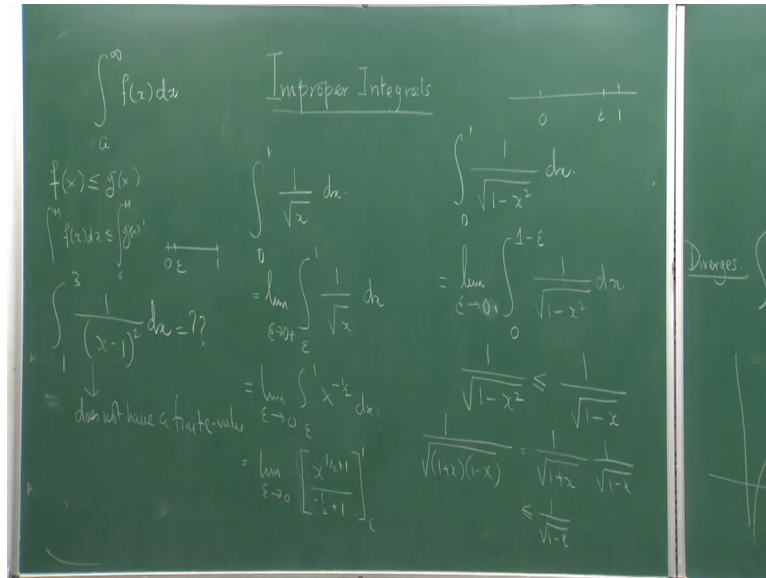 ∫_a^∞ f(x)dx
f(x) ≤ g(x)
f(x)dx ≤
∫_1^3 1/(x-1)² dx = ??
↓
does not have a finite-value.
Improper Integrals
0 ε 1
∫_0^1 1/√x dx.
= lim_{ε→0+} ∫_ε^1 1/√x dx
= lim_{ε→0} ∫_ε^1 x^{-1/2} dx.
= lim_{ε→0} [x^{1/2+1}/(-1/2+1)]_ε^1
0 ε 1
∫_0^1 1/√(1-x²) dx.
= lim_{ε→0+} ∫_0^{1-ε} 1/√(1-x²) dx.
1/√(1-x²) ≤ 1/√(1-x)
1/√((1+x)(1-x)) = 1/√(1+x) 1/√(1-x)
≤ 1/√(1-x)
Diverges.